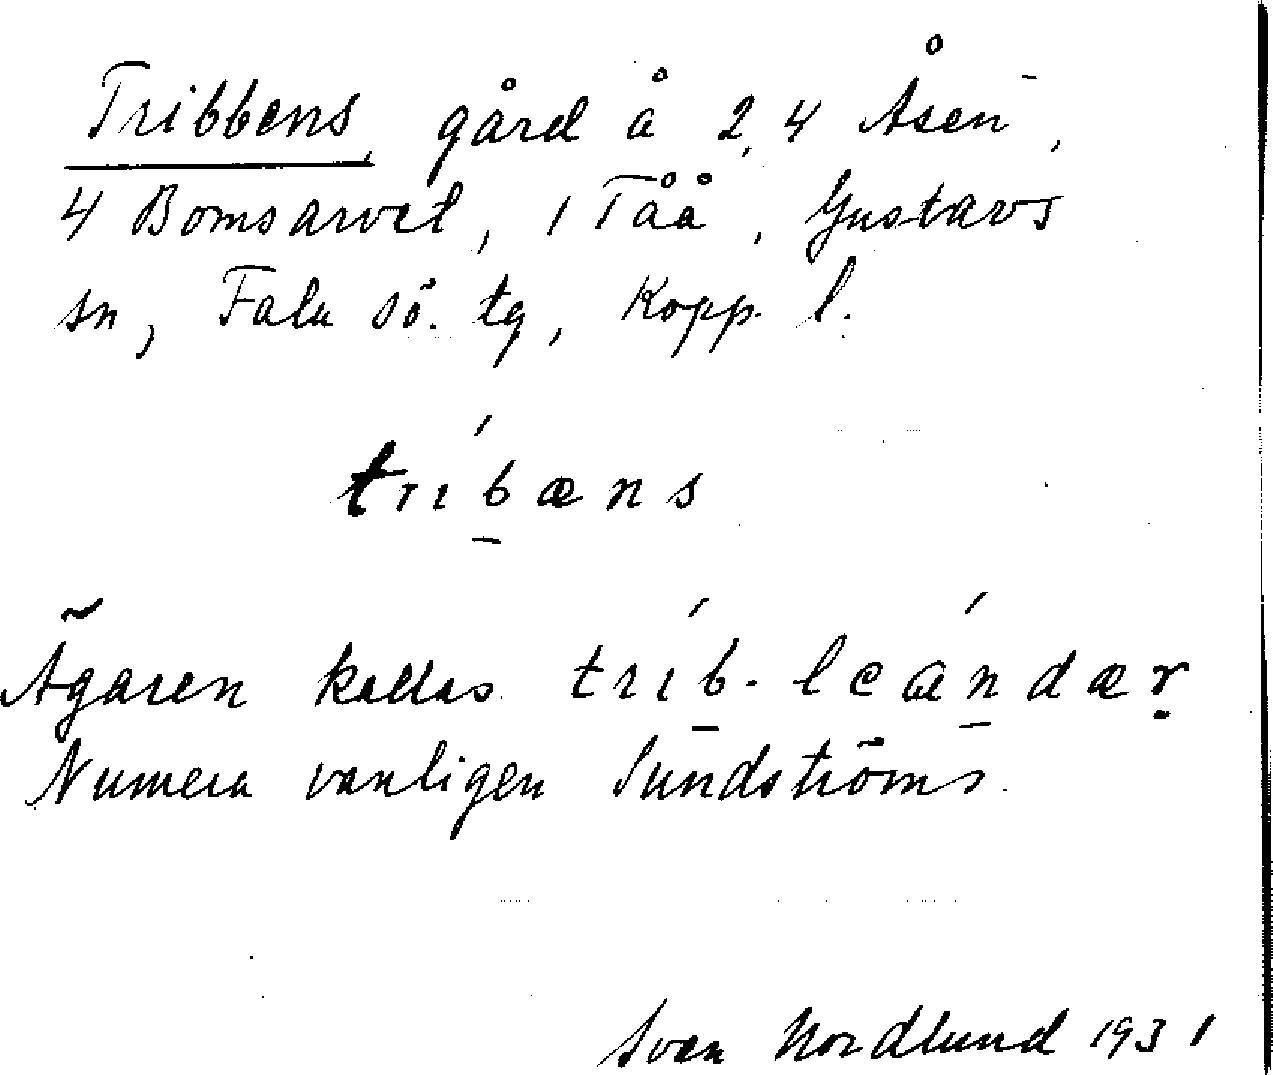 Tribbens, gård å 2, 4 Åsen,
4 Bomsarvet, 1 Tåå, Gustavs
sn, Falu sö. tg, Kopp. l.
trıb̲́æns
Ägaren kallas trıb̲́-leań̲dæṛ
Numera vanligen Sundströms.
Sven Nordlund 1931